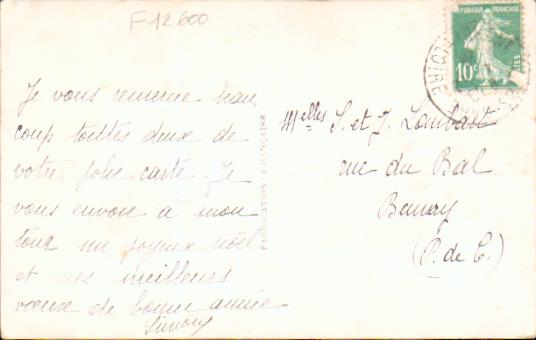 F 12600
Je vous remercie beau
coup toutes deux de
votre jolie carte. Je
vous envoie à mon
tour un joyeux noël
et mes meilleurs
vœux de bonne année
Simone
FABRICATION FRANÇAISE
REPUBLIQUE FRANÇAISE
10c
POSTES
LOIRE
Melles S. et J. Lombart
rue du Bal
(P. de C.)